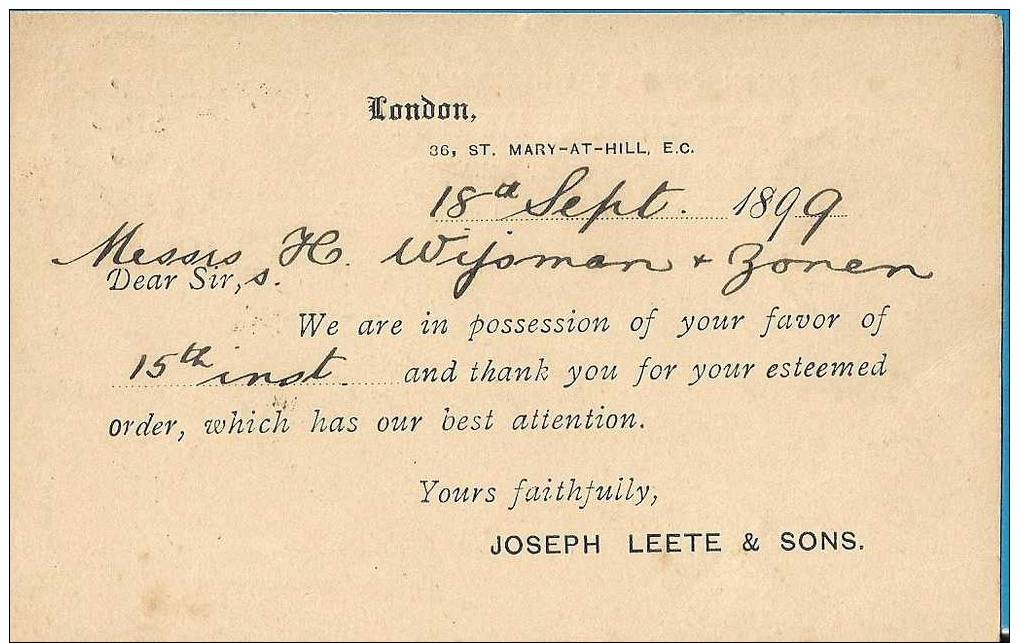 London,
36, ST. MARY-AT-HILL, E.C.
18th Sept. 1899
Messrs H. Wijsman + Zonen
Dear Sir,s.
We are in possession of your favor of
15th inst. and thank you for your esteemed
order, which has our best attention.
Yours faithfully,
JOSEPH LEETE & SONS.